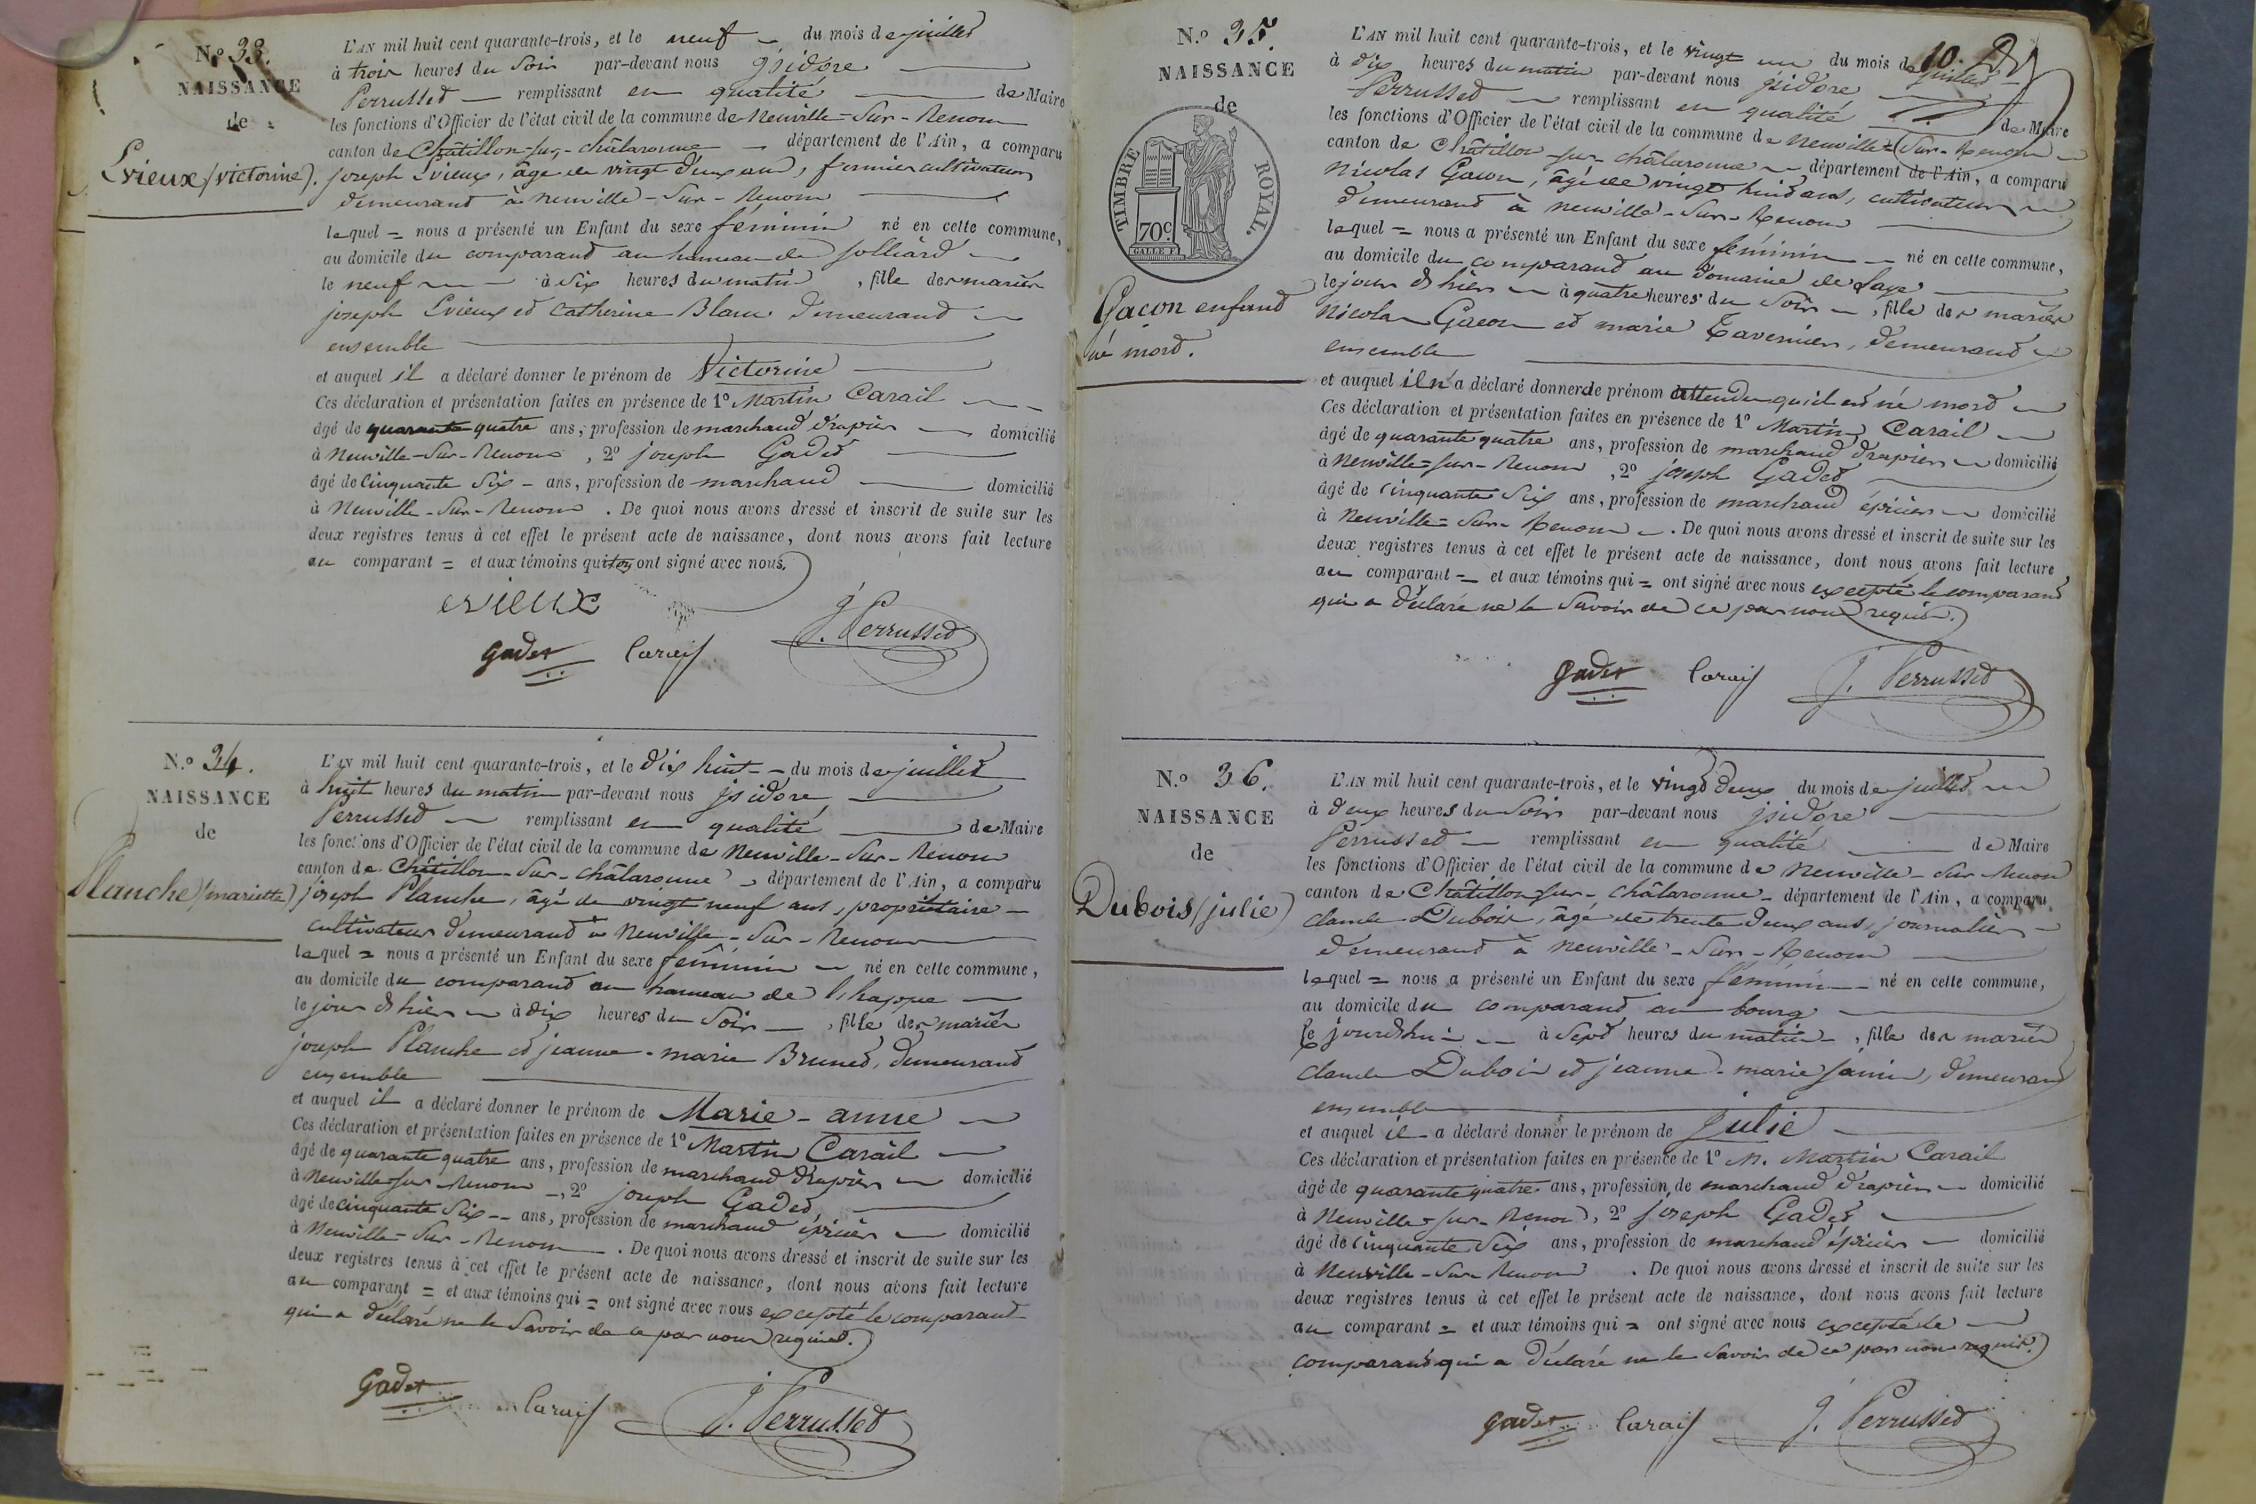 N.º 33.
NAISSANCE
de
Evieux (victorine).
L'AN mil huit cent quarante-trois, et le neuf du mois de juillet
à trois heures du soir par-devant nous jsidore
Perrusset remplissant en qualité de Maire
les fonctions d'Officier de l'état civil de la commune de Neuville-Sur-Renom
canton de Châtillon-sur-châlaronne département de l'Ain, a comparu
joseph Evieux, âgé de vingt deux ans, fermier cultivateur
demeurant à neuville-Sur-Renom
lequel = nous a présenté un Enfant du sexe féminin né en cette commune,
au domicile du comparant au hameau de jolliard
le neuf à six heures du matin, fille des mariés
joseph Evieux et Catherine Blanc demeurant
ensemble
et auquel il a déclaré donner le prénom de Victorine
Ces déclaration et présentation faites en présence de 1º Martin Carail
âgé de quarante quatre ans, profession de marchand drapier domicilié
à Neuville-Sur-Renom, 2º joseph Gadet
âgé de cinquante six ans, profession de marchand domicilié
à Neuville-Sur-Renom. De quoi nous avons dressé et inscrit de suite sur les
deux registres tenus à cet effet le présent acte de naissance, dont nous avons fait lecture
au comparant = et aux témoins qui tous ont signé avec nous.
evieux
gadet Carail J. Perrusset
N.º 34.
NAISSANCE
de
Planche (mariette)
L'AN mil huit cent quarante-trois, et le dix huit du mois de juillet
à huit heures du matin par-devant nous jsidore
Perrusset remplissant en qualité de Maire
les fonctions d'Officier de l'état civil de la commune de Neuville-Sur-Renom
canton de Châtillon-Sur-châlaronne département de l'Ain, a comparu
joseph Planche, âgé de vingt neuf ans, propriétaire
cultivateur demeurant à Neuville-Sur-Renom
lequel = nous a présenté un Enfant du sexe féminin né en cette commune,
au domicile du comparant au hameau de
le jour d'hier à dix heures du soir, fille des mariés
joseph Planche et jeanne-marie Brunet, demeurant
ensemble
et auquel il a déclaré donner le prénom de Marie-anne
Ces déclaration et présentation faites en présence de 1º Martin Carail
âgé de quarante quatre ans, profession de marchand drapier domicilié
à Neuville-sur-Renom, 2º joseph Gadet
âgé de cinquante six ans, profession de marchand épicier domicilié
à Neuville-Sur-Renom. De quoi nous avons dressé et inscrit de suite sur les
deux registres tenus à cet effet le présent acte de naissance, dont nous avons fait lecture
au comparant = et aux témoins qui = ont signé avec nous excepté le comparant
qui a déclaré ne le Savoir de ce par nous requis.
gadet Carail J. Perrusset
10.
N.º 35.
NAISSANCE
de
TIMBRE ROYAL.
70c
Gacon enfant
né mort.
L'AN mil huit cent quarante-trois, et le vingt un du mois de juillet
à dix heures du matin par-devant nous jsidore
Perrusset remplissant en qualité de Maire
les fonctions d'Officier de l'état civil de la commune de Neuville-Sur-Renom
canton de Châtillon-sur-châlaronne département de l'Ain, a comparu
Nicolas Gacon, âgé de vingt huit ans, cultivateur
demeurant à Neuville-Sur-Renom
lequel = nous a présenté un Enfant du sexe féminin né en cette commune,
au domicile du comparant au domaine de Laye
le jour d'hier à quatre heures du soir, fille des mariés
Nicolas Gacon et marie Tavernier, demeurant
ensemble
et auquel il n'a déclaré donner de prénom attendu qu'il est né mort
Ces déclaration et présentation faites en présence de 1º Martin Carail
âgé de quarante quatre ans, profession de marchand drapier domicilié
à Neuville-sur-Renom, 2º joseph Gadet
âgé de cinquante six ans, profession de marchand épicier domicilié
à Neuville-Sur-Renom. De quoi nous avons dressé et inscrit de suite sur les
deux registres tenus à cet effet le présent acte de naissance, dont nous avons fait lecture
au comparant = et aux témoins qui = ont signé avec nous excepté le comparant
qui a déclaré ne le Savoir de ce par nous requis.
gadet Carail J. Perrusset
N.º 36.
NAISSANCE
de
Dubois (julie)
L'AN mil huit cent quarante-trois, et le vingt deux du mois de juillet
à deux heures du Soir par-devant nous jsidore
Perrusset remplissant en qualité de Maire
les fonctions d'Officier de l'état civil de la commune de Neuville-Sur-Renom
canton de Châtillon-sur-châlaronne département de l'Ain, a comparu
claude Dubois, âgé de trente deux ans, journalier
demeurant à Neuville-Sur-Renom
lequel = nous a présenté un Enfant du sexe féminin né en cette commune,
au domicile du comparant au bourg
le jourd'hui à sept heures du matin, fille des mariés
claude Dubois et jeanne-marie janin, demeurant
ensemble
et auquel il a déclaré donner le prénom de julie
Ces déclaration et présentation faites en présence de 1º M. Martin Carail
âgé de quarante quatre ans, profession de marchand drapier domicilié
à Neuville-sur-Renom, 2º joseph Gadet
âgé de cinquante six ans, profession de marchand épicier domicilié
à Neuville-Sur-Renom. De quoi nous avons dressé et inscrit de suite sur les
deux registres tenus à cet effet le présent acte de naissance, dont nous avons fait lecture
au comparant = et aux témoins qui = ont signé avec nous excepté le
comparant qui a déclaré ne le Savoir de ce par nous requis.
gadet Carail J. Perrusset